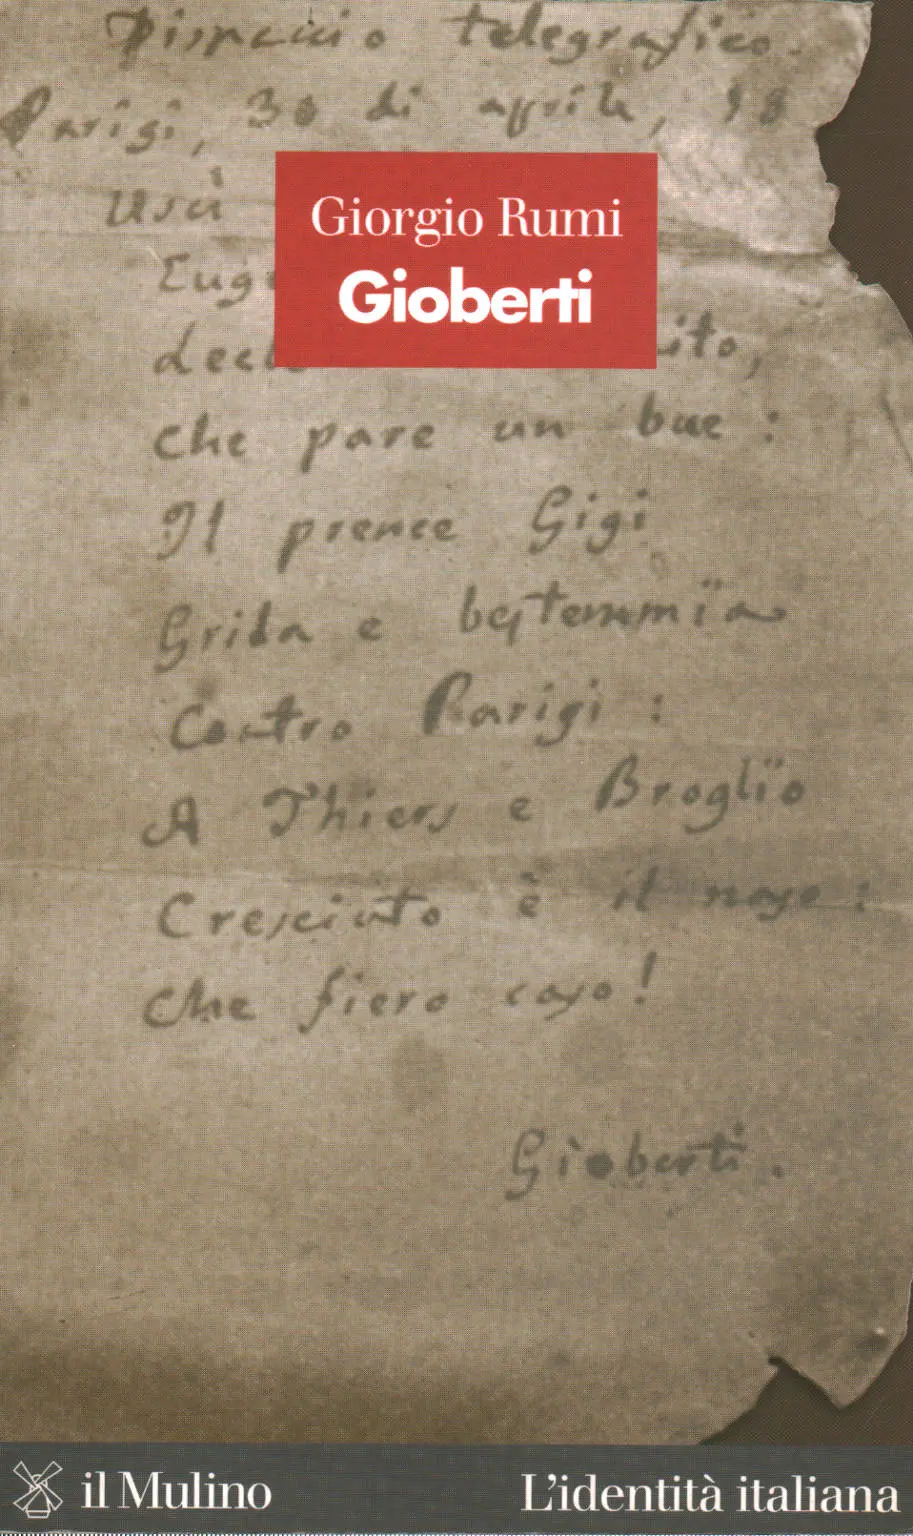 Dispaccio telegrafico.
Parigi, 30 di aprile, 18
Usù
Giorgio Rumi
Gioberti
Eug
dec ito,
che pare un bue:
Il prence Gigi
Grida e bestemmïa
Contro Parigi:
A Thiers e Broglïo
Cresciuto è il naso:
Che fiero caso!
Gioberti.
il Mulino L'identità italiana